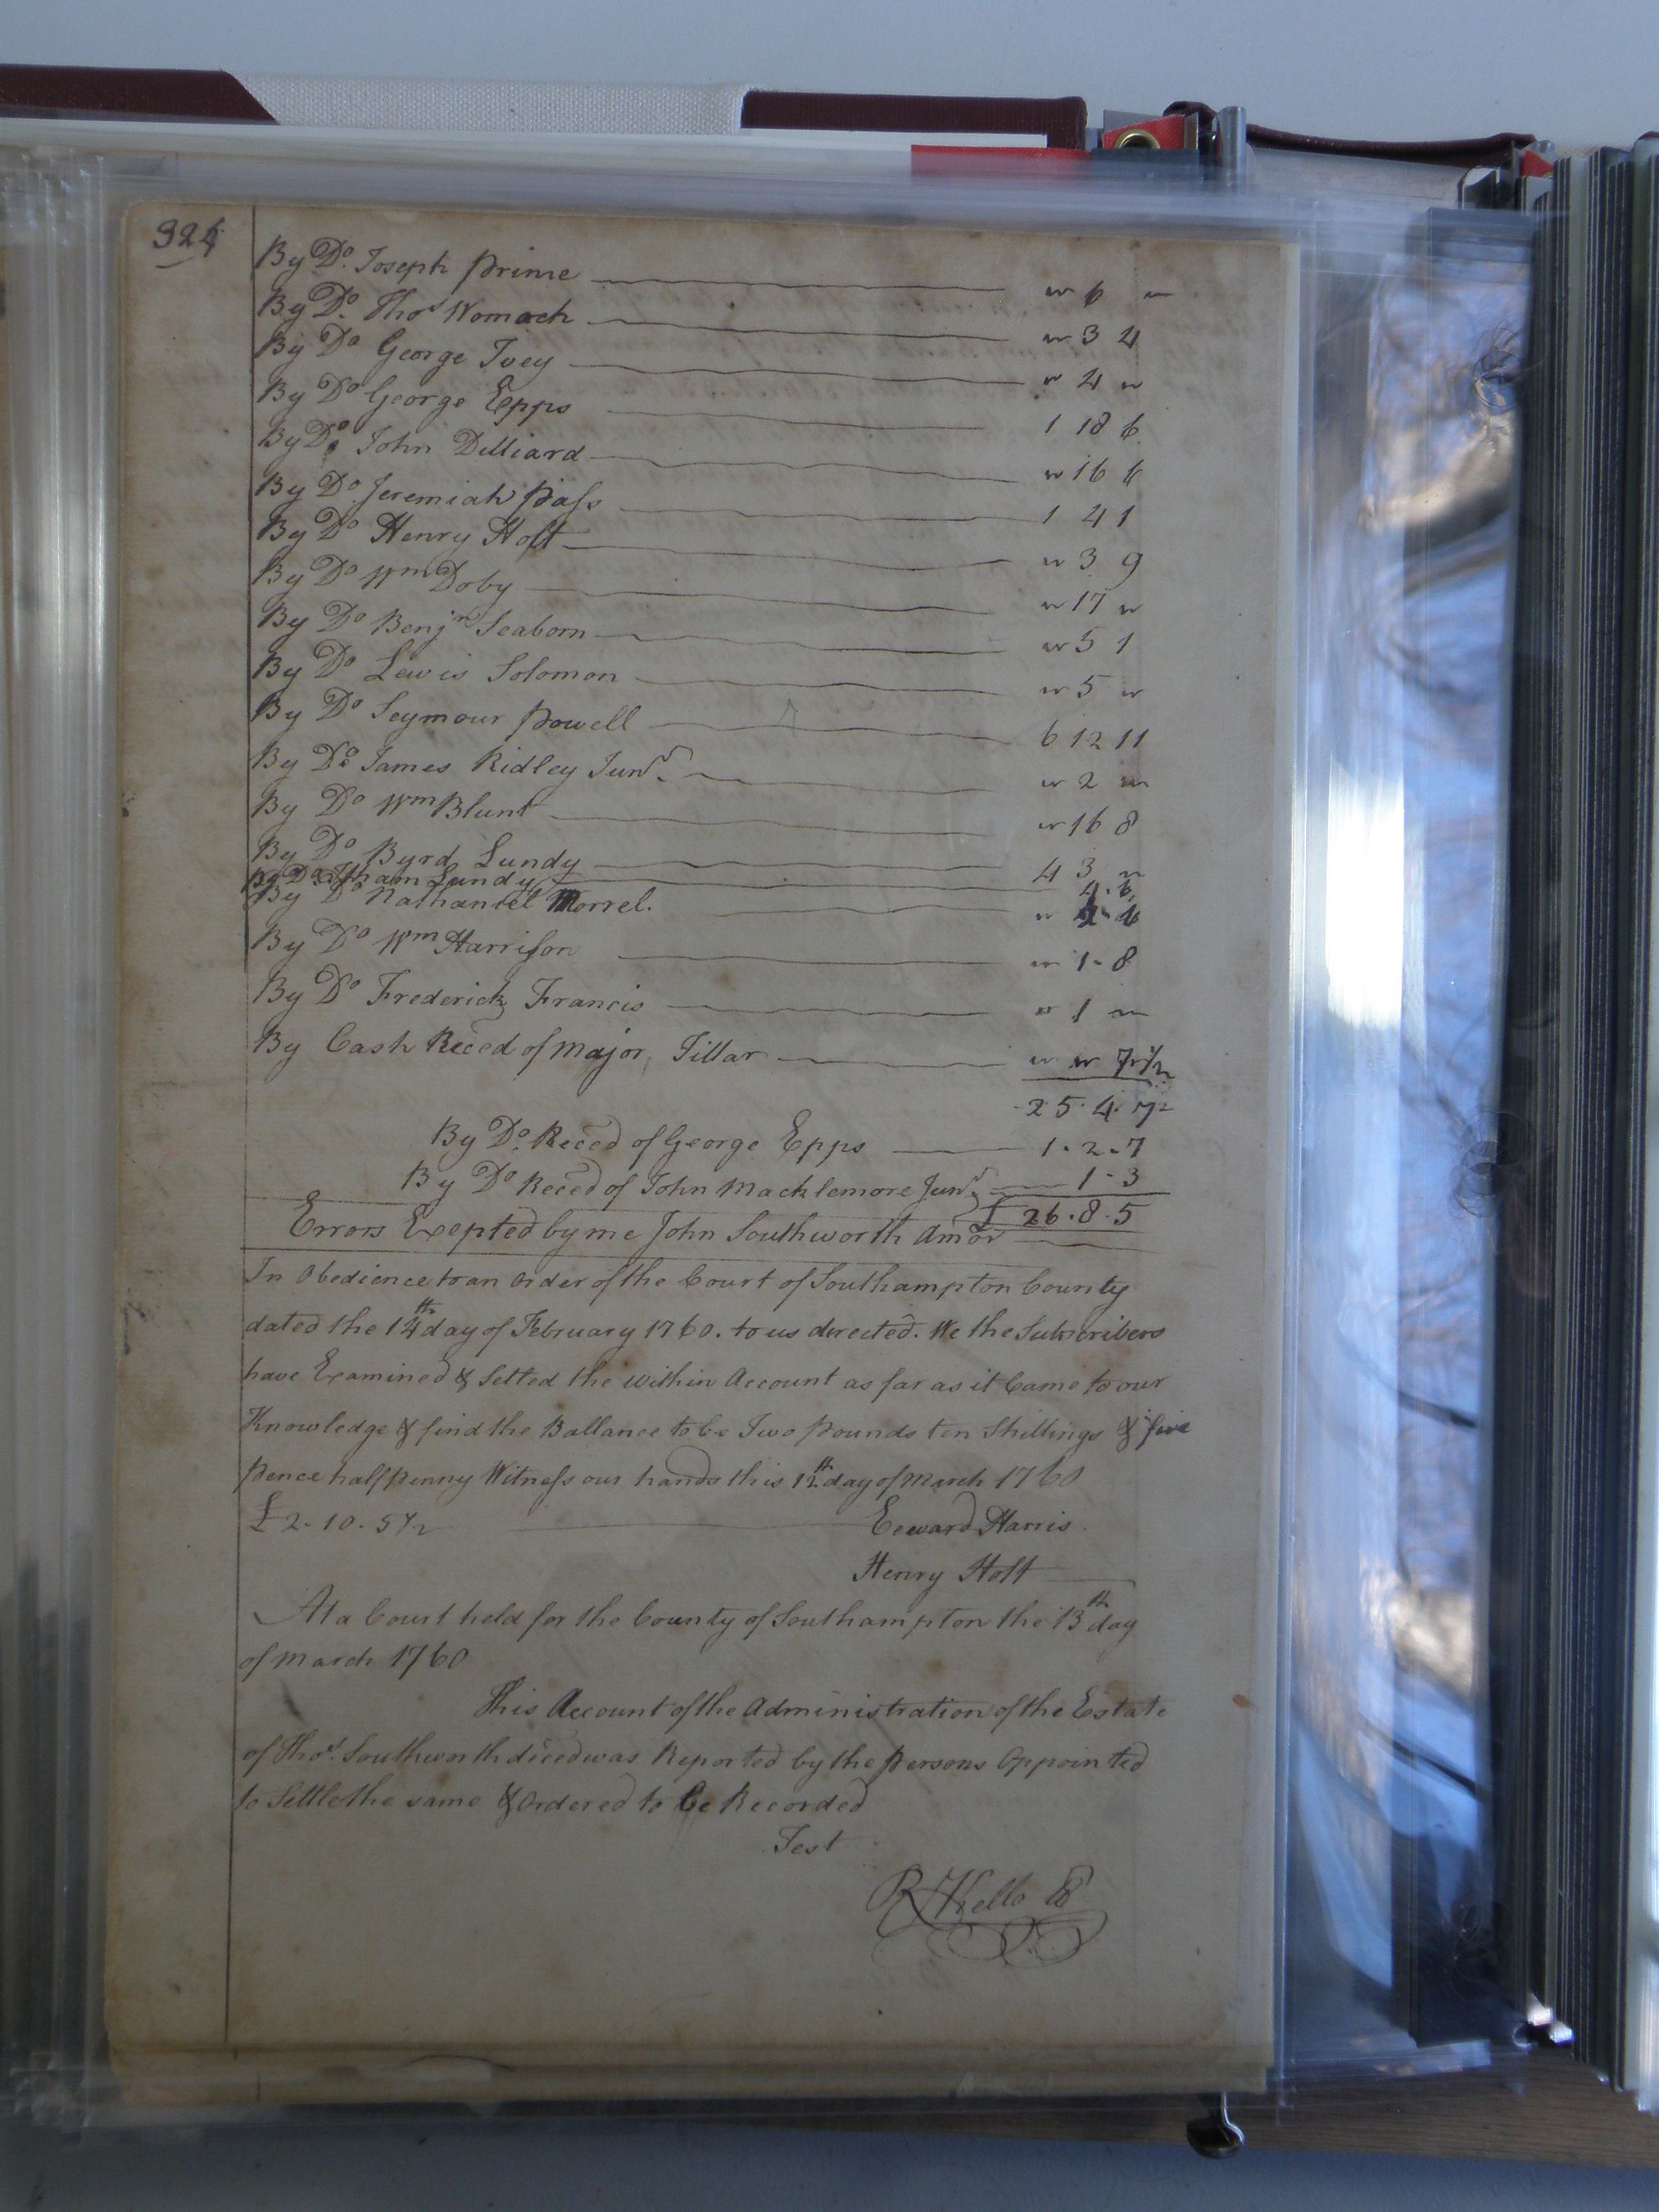 324
By Do. Joseph Prime — " 6 "
By Do. Thos Womack — " 3 4
By Do George Ivey — " 4 "
By Do George Epps — 1 18 6
By Do John Dilliard — " 16 6
By Do Jeremiah Pass — 1 4 1
By Do Henry Holt — " 3 9
By Do Wm Doby — " 17 "
By Do Benjn Seaborn — " 5 1
By Do Lewis Solomon — " 5 "
By Do Seymour Powell — 6 12 11
By Do James Ridley Junr. — " 2 "
By Do Wm Blunt — " 16 8
By Do Byrd Lundy — 4 3 "
By Do Isham Lundy — 4. 6
By Do Nathaniel Morrel. — "
By Do Wm Harrison — " 1 - 8
By Do Frederick Francis — " 1 "
By Cash Reced of Major Tillar — " " 7 1/2
25. 4. 7
By Do. Reced of George Epps — 1 - 2 - 7
By Do Reced of John Macklemore Junr. — 1 - 3
£ 26. 8. 5
Errors Exepted by me John Southworth Amor
In Obedience to an Order of the Court of Southampton County
dated the 14th day of February 1760. to us derected. We the Subscribers
have Examined & Setled the within Account as far as it Came to our
Knowledge & find the Ballance to be Two Pounds ten Shillings & five
Pence halfpenny Witness our hands this 12th day of March 1760
£ 2. 10. 5 1/2 — Edward Harris.
Henry Holt
At a Court held for the County of Southampton the 13th day
of March 1760
This Account of the Administration of the Estate
of Thos. Southworth deced was Reported by the Persons Appointed
to Settle the same & Ordered to be Recorded
Test
R Kello